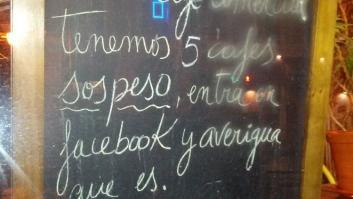 tenemos 5 cafes
sospeso, entra en
facebook y averigua
que es.